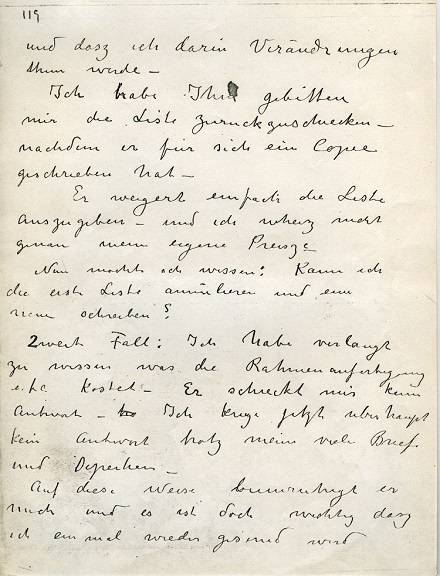 119
und dasz ich darin Verändrungen
thun werde –
Ich habe Ihn gebitten
mir die Liste zurückzuschiecken –
nachdem er für sich ein Copie
geschrieben hat –
Er weigert einfach die Liste
auszugeben – und ich weisz nicht
genau meine eigene Preisze
Nun möchte ich wissen: Kann ich
die erste Liste annulieren und eine
neue schreiben?
Zweite Fall: Ich habe verlangt
zu wissen was die Rahmenanfertigung
etc kostet – Er schieckt mir kein
Antwort – Ich kriege jetzt überhaupt
kein Antwort trotz meine viele Briefe
und Depechen –
Auf diese Weise beunruhigt er
mich und es ist doch wichtig dasz
ich einmal wieder gesund werd